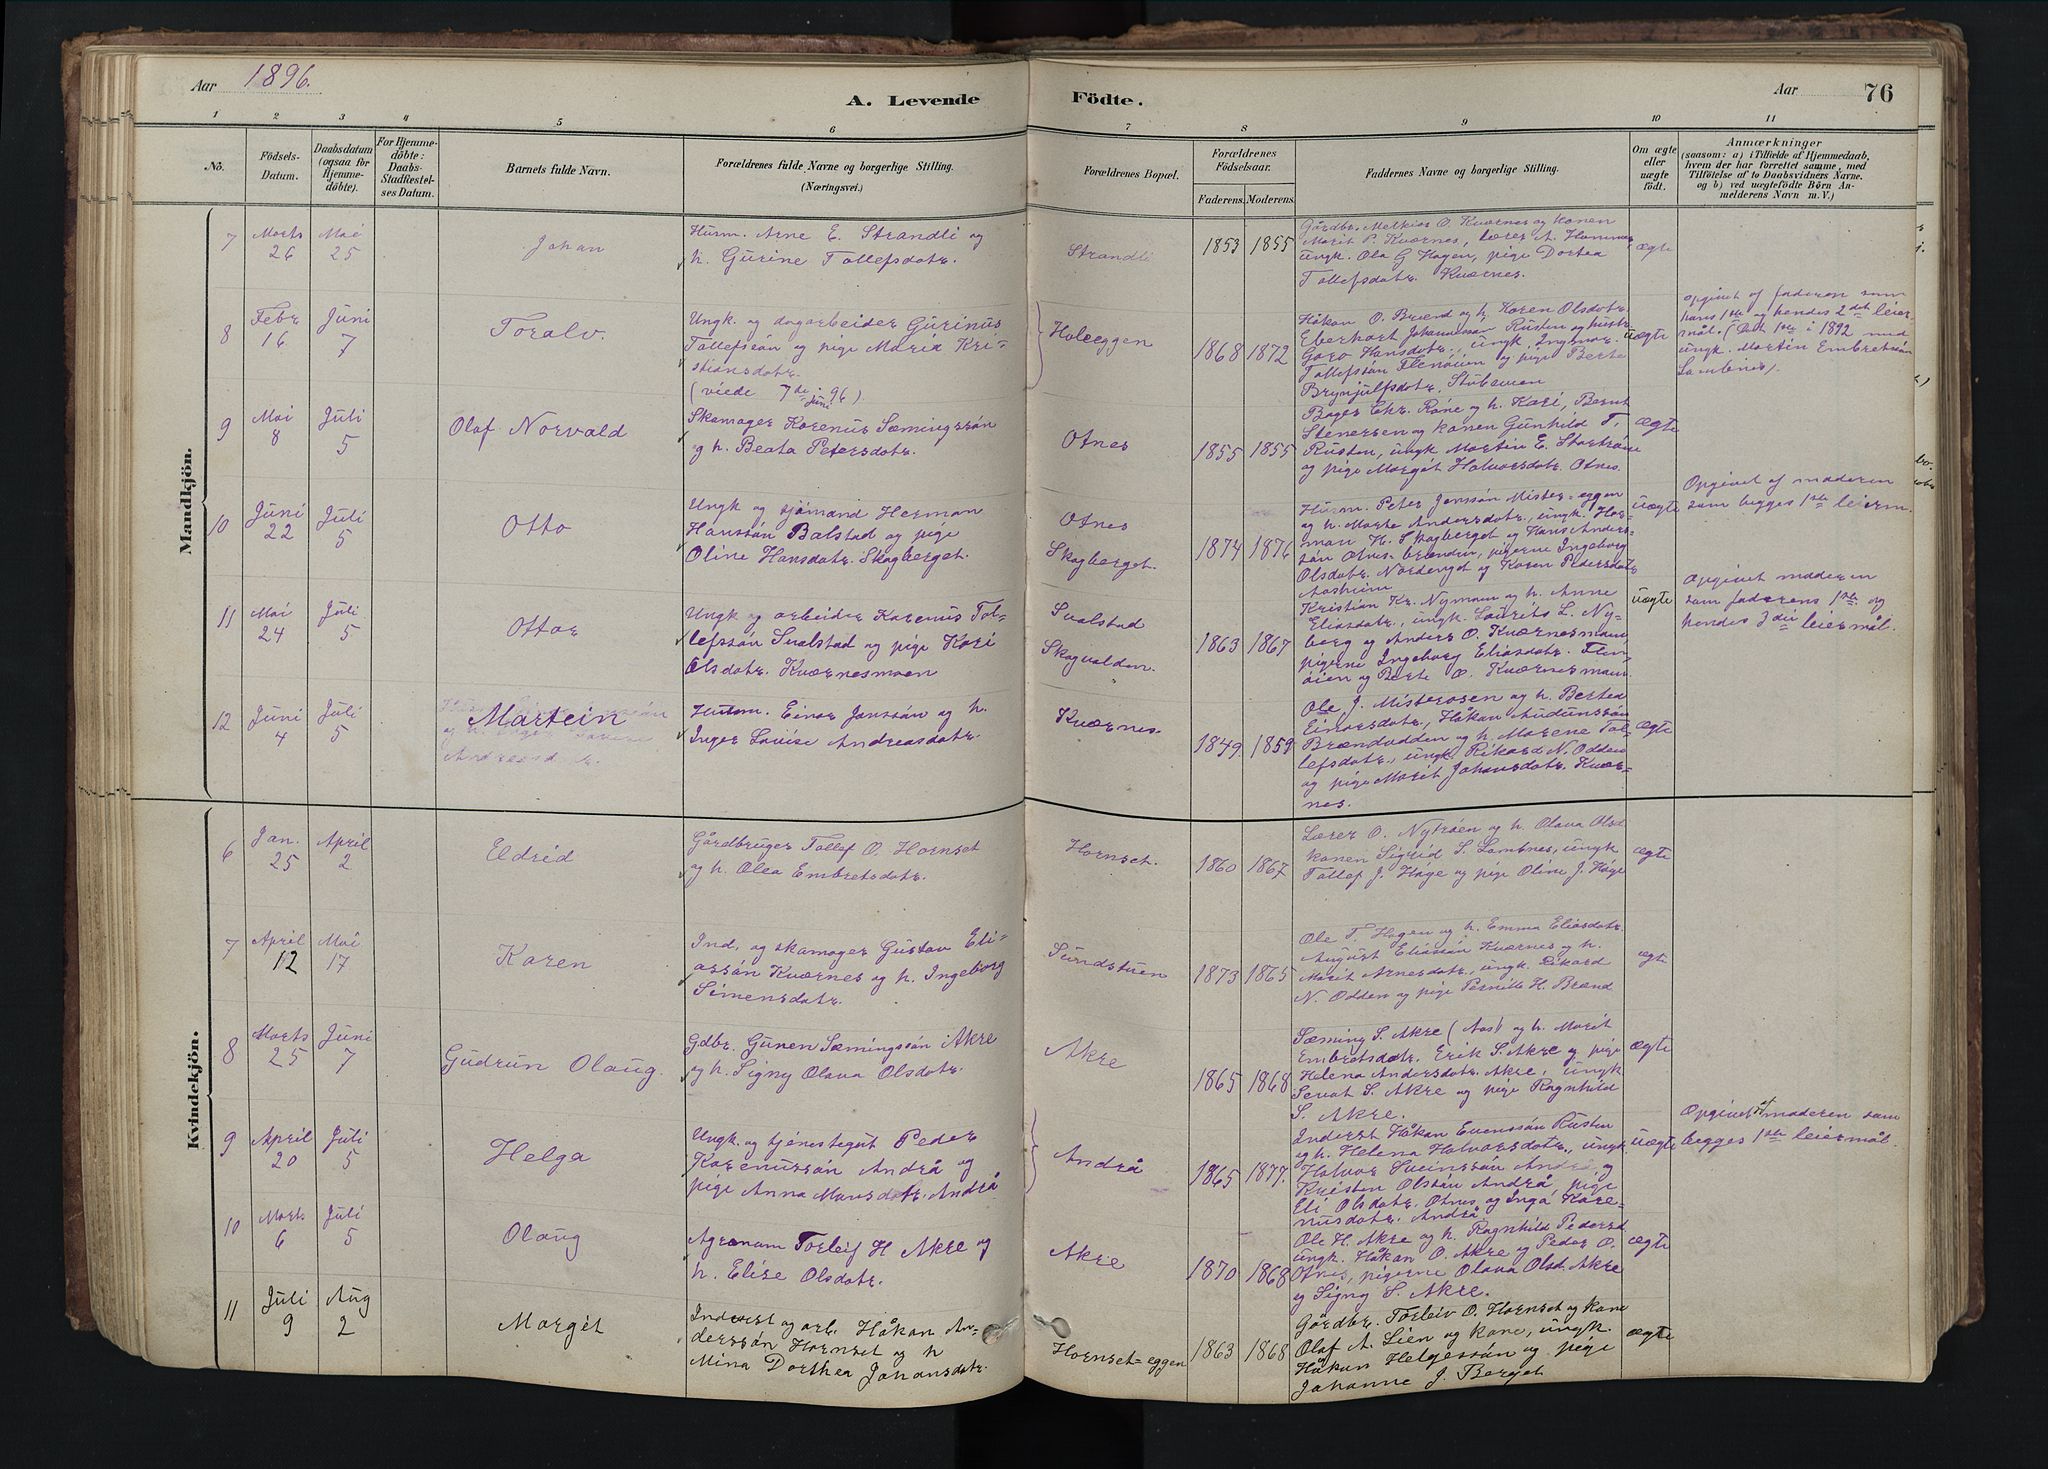 Aar 1896.
A. Levende Födte.
Aar
76
1 2 3 4 5 6 7 8 9 10 11
No.
Födsels-Datum.
Daabsdatum (ogsaa for Hjemmedöbte).
For Hjemmedöbte: Daabs-Stadfæstelses Datum.
Barnets fulde Navn.
Forældrenes fulde Navne og borgerlige Stilling. (Næringsvei.)
Forældrenes Bopæl.
Forældrenes Födselsaar.
Faderens. Moderens.
Faddernes Navne og borgerlige Stilling.
Om ægte eller uægte födt.
Anmærkninger
(saasom: a) i Tilfælde af Hjemmedaab, hvem der har forrettet samme, med Tilföielse af to Daabsvidners Navne. og b) ved uægtefödte Börn Anmelderens Navn m.V.)
Mandkjön.
7
Marts 26
Mai 25
Johan
Husm. Arne E. Strandli og
h. Gurine Tollefsdatr.
Strandli
1853 1855
Gårdbr. Mathias O. Kværnes og konen
Marit P. Kværnes, Lærer A. Hammer,
ungk. Ola G Hagen, pige Dortea
Tollefsdatr. Kværnes.
ægte
8
Febr 16
Juni 7
Toralv.
Ungk. og dagarbeider Gurinus
Tollefssön og pige Maria Kri-
stiansdatr.
(viede 7de juni 96)
Holeeggen
1868 1872
Håkon O. Brænd og h. Karen Olsdatr.
Eberhart Johannessön Rusten og hustr.
Goro Hansdatr., ungk. Ingvar
Tollefssön Flenöien og pige Berte
Brynjulfsdatr. Stubmoen
uægte
Opgivet af faderen som
hans 1ste og hendes 2det leier
mål. (Det 1ste i 1892 med
ungk. Martin Embretsön
Lombnes).
9
Mai 8
Juli 5
Olaf Norvald
Skomager Karenus Sæmingssön
og h. Beata Petersdatr.
Otnes
1855 1855
Bager Chr. Röne og h. Kari, Bernt
Stenersen og konen Gunhild T.
Rusten, ungk Martin E. Storström
og pige Margit Halvorsdatr. Otnes.
ægte
10
Juni 22
Juli 5
Otto
Ungk og sjömand Herman
Hanssön Balstad og pige
Oline Hansdatr. Skogberget.
Otnes
Skogberget.
1874 1876
Husm. Peter Jonssön Mister-eggen
og h. Marte Andersdatr., ungk. Her-
man H. Skogberget og Hans Anders-
sön Otnes-brænden, pigerne Ingeborg
Olsdatr. Nordenget og Karen Pedersdatr
Aasheim
uægte
Opgivet af moderen
som begges 1ste leierm.
11
Mai 24
Juli 5
Ottar
Ungk og arbeider Karenus Tol-
lefssön Svalstad og pige Kari
Olsdatr. Kværnesmoen
Svalstad
Skogvolden.
1863 1867
Kristian Kr. Nymoen og h. Anne
Eliasdatr., ungk. Laurits L. Ny-
berg og Anders O. Kværnesmoen
pigerne Ingeborg Eliasdatr. Flen-
öien og Berte O. Kværnesmoen
uægte
Opgivet moderen
som faderens 1ste og
hendes 3die leiermål.
12
Juni 4
Juli 5
Martein
Husm. Einar Jonssön og h.
Inger Lovise Andreasdatr.
Kværnes
1849. 1859
Ole J. Misterosen og h. Bertea
Einarsdatr., Håkon Audunssön
Brændvolden og h. Marene Tol-
lefsdatr., ungk. Rikard N. Odden
og pige Marit Johansdatr. Kvær-
nes.
ægte
Kvindekjön.
6
Jan. 25
April 2
Eldrid
Gårdbruger Tollef O. Hornset
og h. Olea Embretsdatr.
Hornset.
1860 1867
Lærer O. Nytröen og h. Olava Olsd
konen Sigrid S. Lombnes, ungk
Tollef J. Håge og pige Oline J. Håge
ægte
7
April 12
Mai 17
Karen
Ind. og skomager Gustav Eli-
assön Kværnes og h. Ingeborg
Simensdatr.
Sundstuen
1873 1865
Ole T. Hagen og h. Emma Eliasdatr.
August Eliassön Kværnes og h.
Marit Arnesdatr., ungk. Rikard
N. Odden og pige Pernille H. Brænd
ægte
8
Marts 25
Juni 7
Gudrun Olaug.
Gdbr. Gunen Sæmingssön Akre
og h. Signy Olava Olsdatr.
Akre
1865 1868
Sæming S. Akre (Aas) og h. Marit
Embretsdatr. Erik S. Akre og pige
Helena Andersdatr. Akre, ungk
Sevat S. Akre og pige Ragnhild
S. Akre.
ægte
9
April 20
Juli 5
Helga
Ungk. og tjenestegut Peder
Karenussön Andrå og
pige Anna Monsdatr. Andrå
Andrå
1865 1877.
Inderst Håkon Evenssön Rusten
og h. Helena Halvorsdatr., ungk
Halvor Sveinssön Andrå og
Kristen Olssön Andrå, pige
Eli Olsdatr. Otnes og Inga Kare-
nusdatr. Andrå
uægte
Opgivet af moderen som
begges 1ste leiermål.
10
Marts 6
Juli 5
Olaug
Agronom Torleif H Akre og
h. Elise Olsdatr.
Akre
1870 1868
Ole H. Akre og h. Ragnhild Pedersd
ungk. Håkon O. Akre og Peder O.
Otnes, pigerne Olava Olsd. Akre
og Signy S. Akre.
ægte
11
Juli 9
Aug 2
Margit
Inderst og arb. Håkon An-
derssön Hornset og h
Mina Dorthea Johansdatr.
Hornset-eggen
1863 1868
Gårdbr. Torleiv O. Hornset og kone
Olaf A. Lien og kone, ungk.
Håkon Helgessön og pige
Johanne J. Berget
ægte